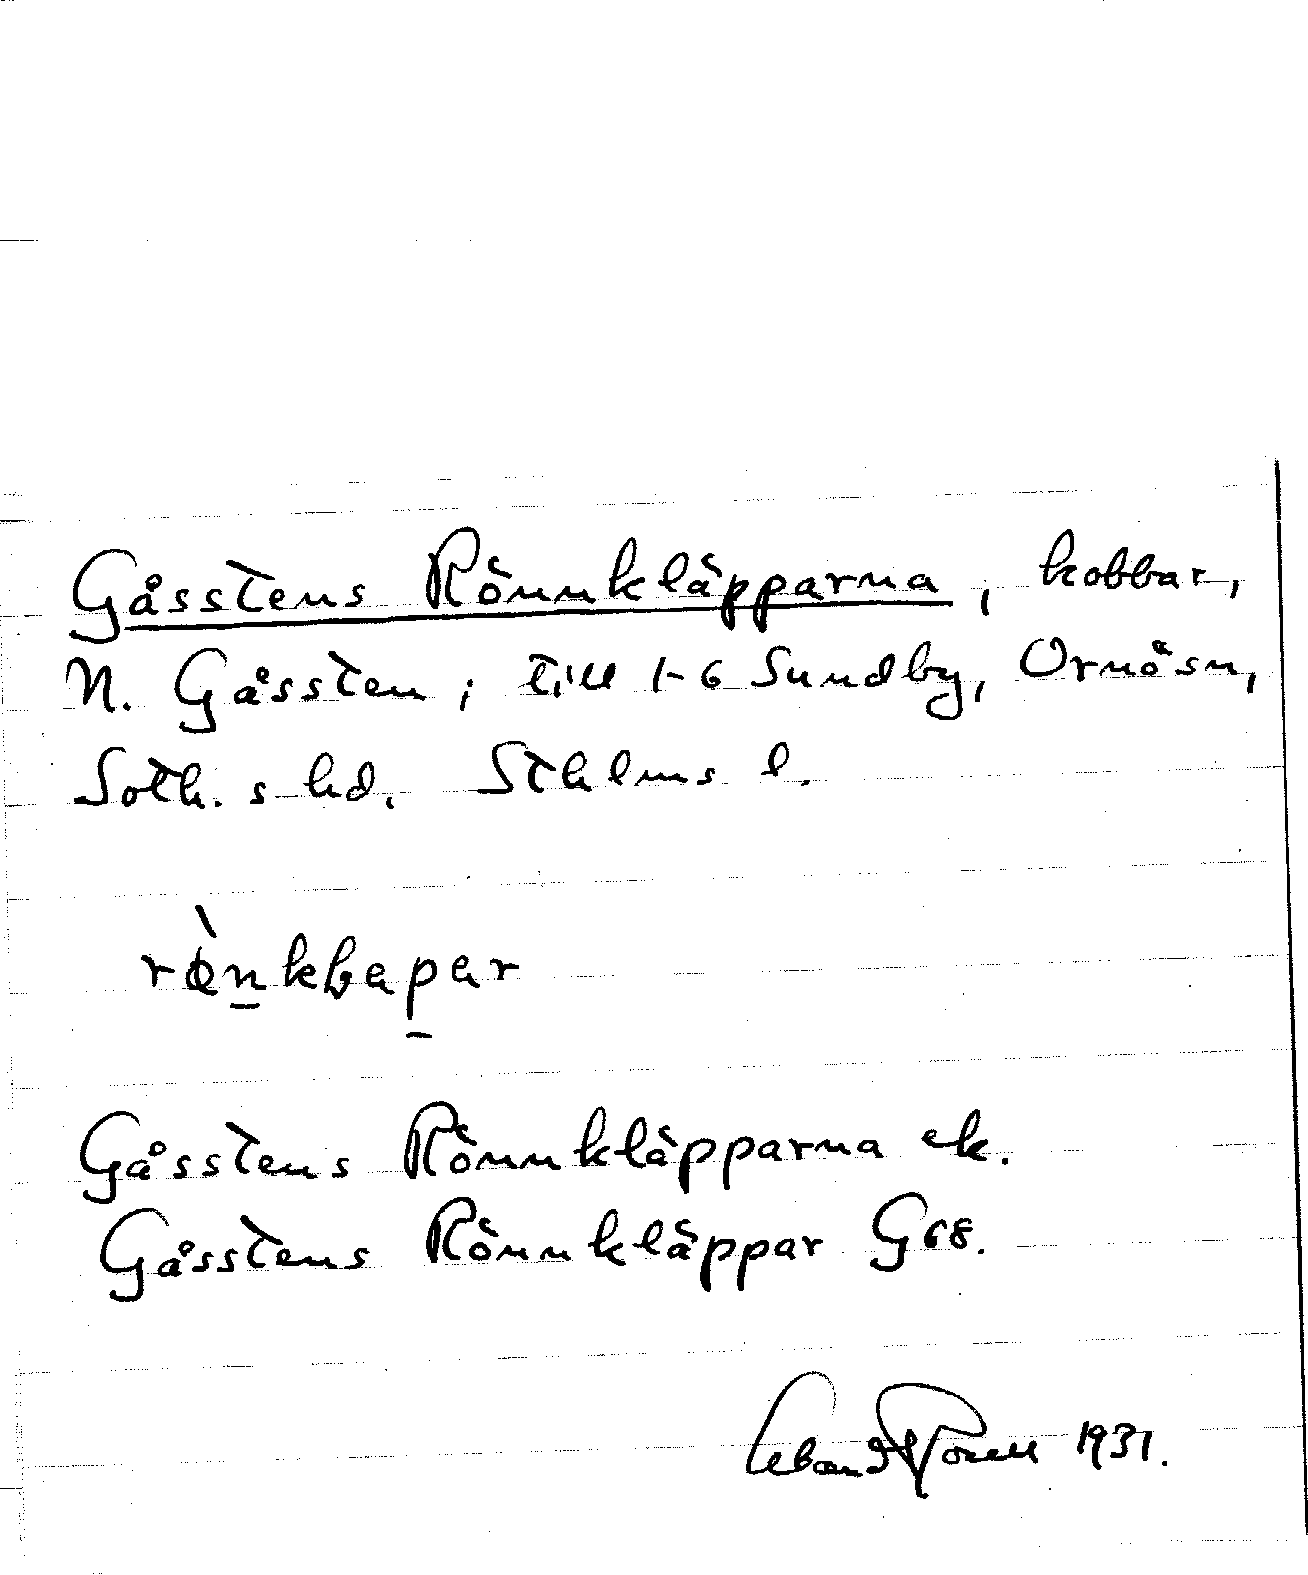 Gåsstens Rönnkläpparna, kobbar,
N. Gåssten; till 1-6 Sundby, Ornösn,
Soth.s hd. Sthlms l.
Gåsstens Rönnkläpparna ek.
Gåsstens Rönnkläppar G68.
1931.